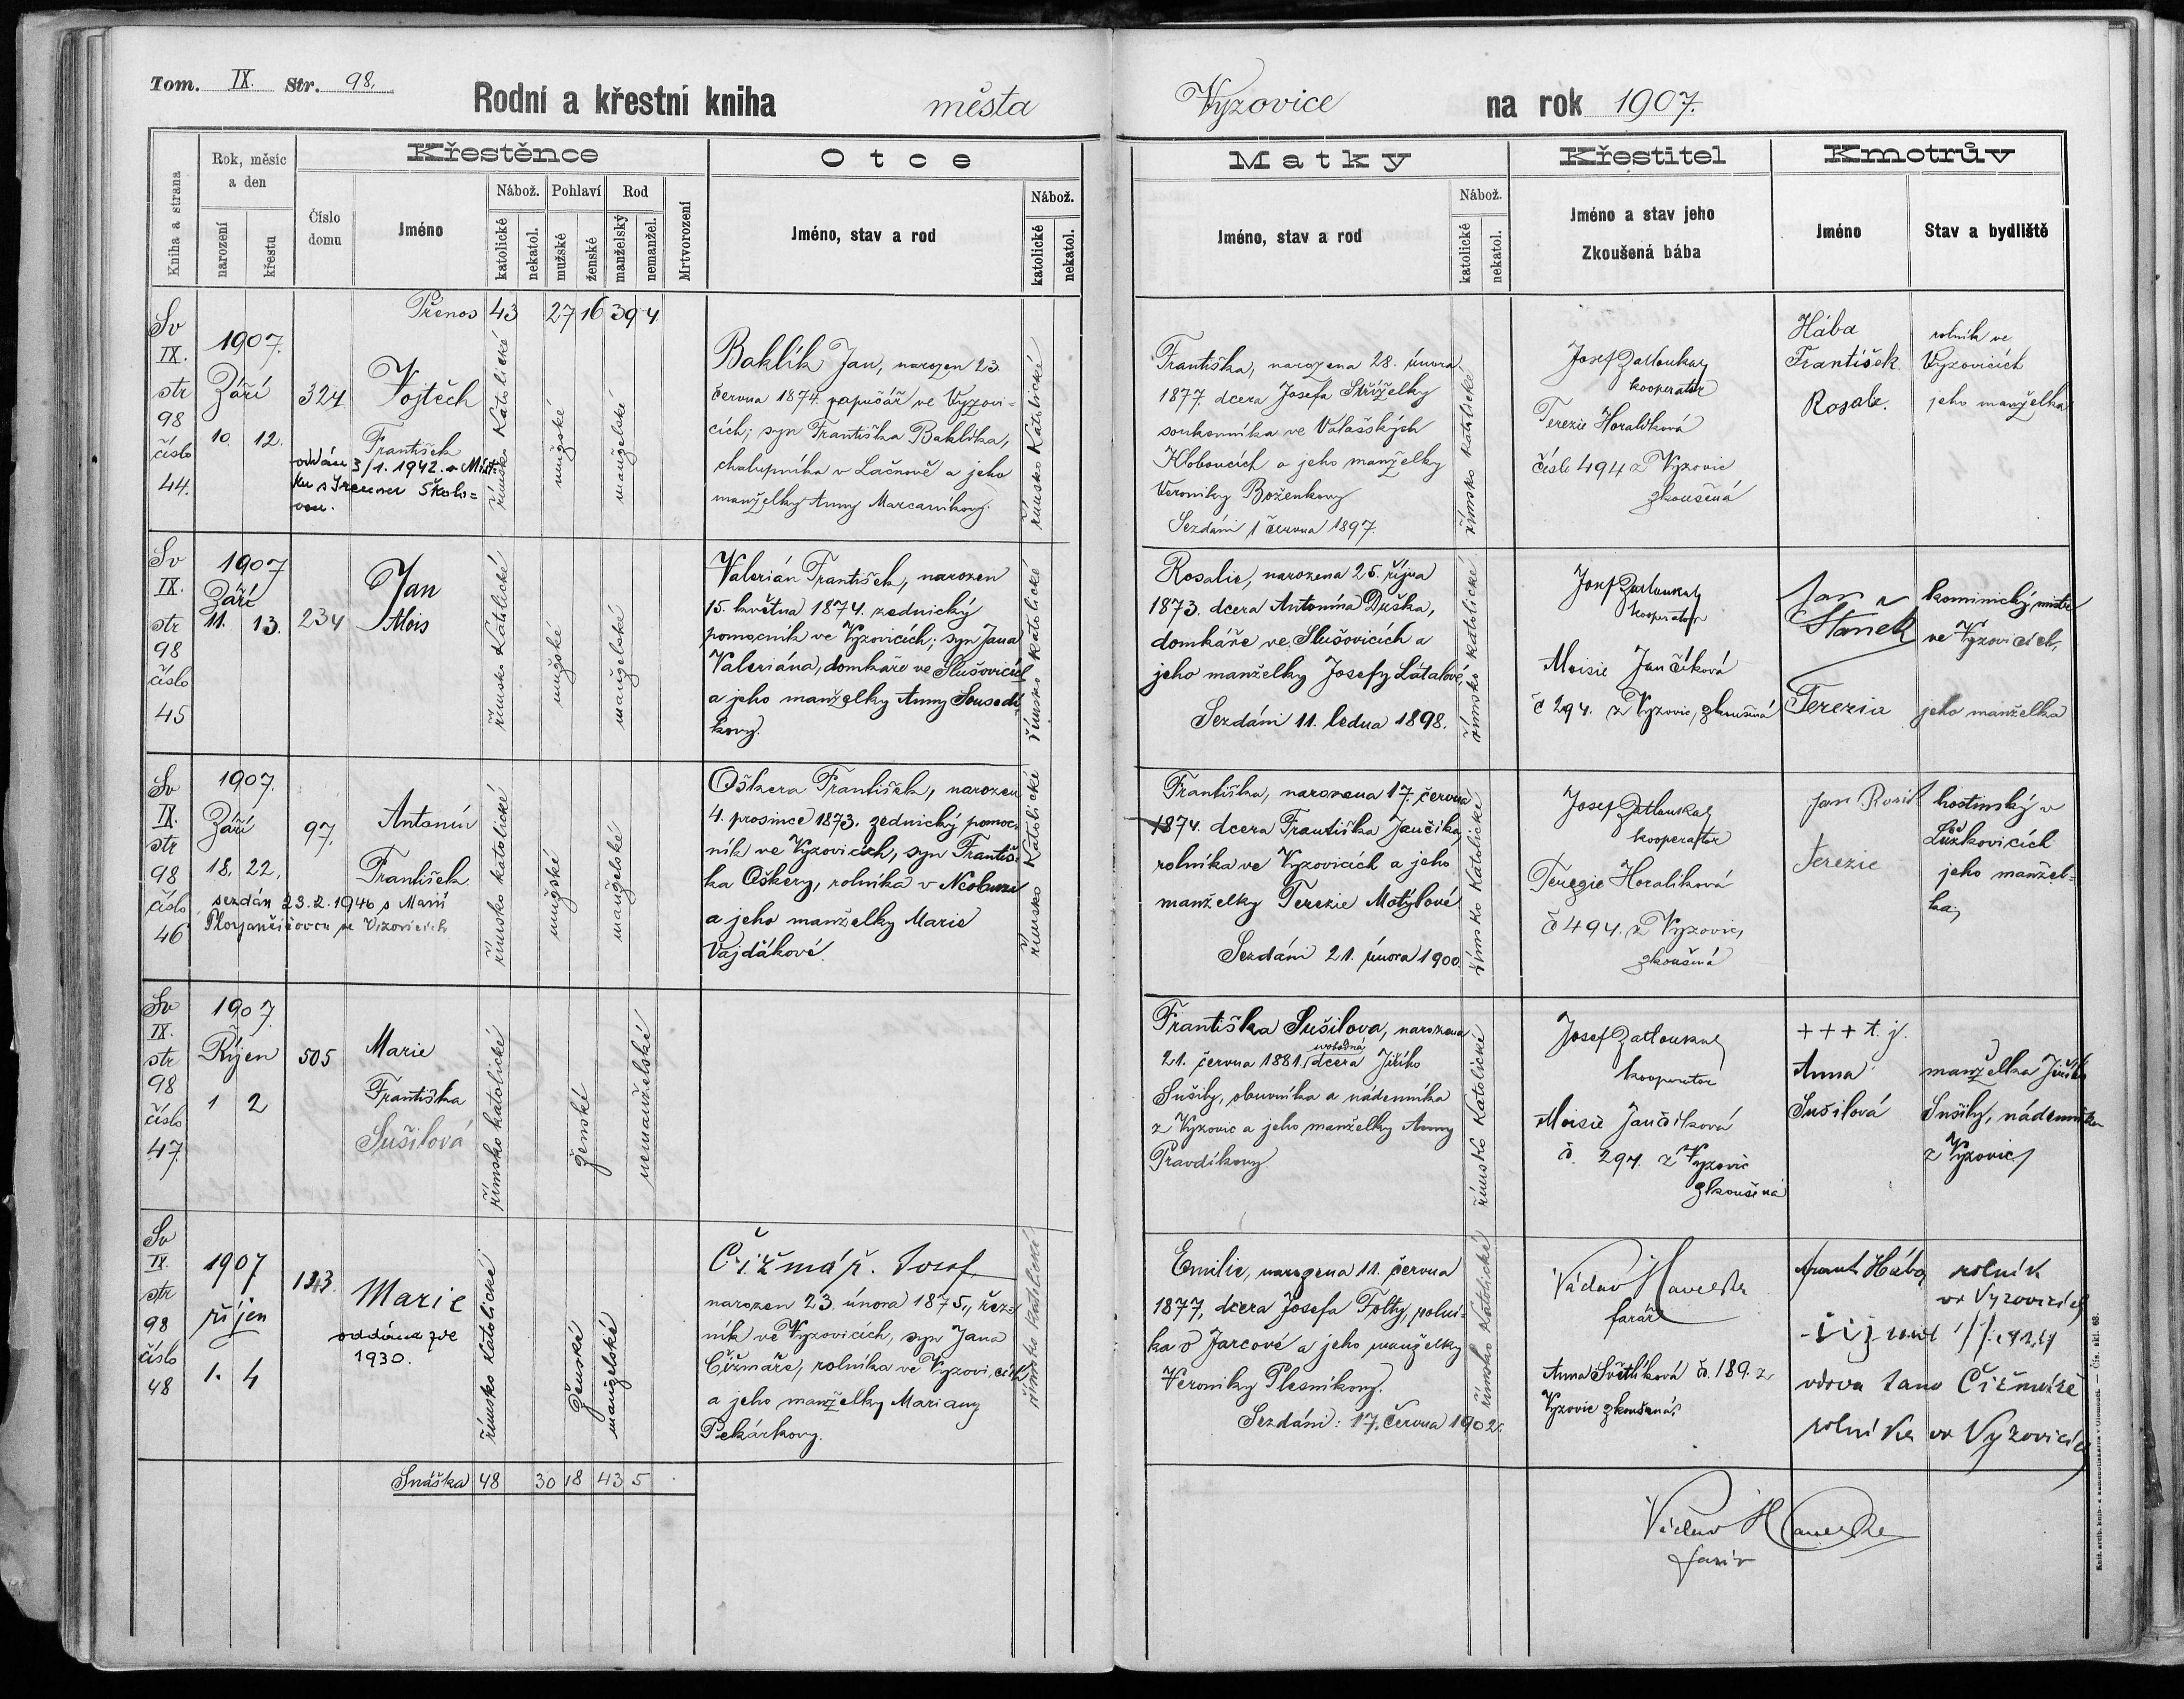 Tom. IX. Str. 98.
Rodní a křestní kniha města Vyzovice na rok 1907.
Kniha a strana
Rok, měsíc
a den
narození
křestu
Číslo
domu
Křestěnce
Jméno
Nábož.
katolické
nekatol.
Pohlaví
mužské
ženské
Rod
manželský
nemanžel.
Mrtvorození
Otce
Jméno, stav a rod
Nábož.
katolické
nekatol.
Matky
Jméno, stav a rod
Nábož.
katolické
nekatol.
Křestitel
Jméno a stav jeho
Zkoušená bába
Kmotrův
Jméno
Stav a bydliště
Přenos 43 27 16 39 4
Sv
IX.
str
98
číslo
44.
1907.
Září
10. 12.
324
Vojtěch
František
oddán 3/1. 1942. v Míst
ku s Irenou Školo=
vou.
římsko katolické
mužské
manželské
Baklík Jan, narozen 23.
června 1874. papučář ve Vyzovi-
cích; syn Františka Baklíka,
chalupníka v Lačnově a jeho
manželky Anny Marcaníkovy.
římsko katolické
Františka, narozena 28. února
1877. dcera Josefa Stříželky
soukenníka ve Valašských
Kloboucích a jeho manželky
Veroniky Boženkovy
Sezdáni 1 června 1897.
římsko katolické
Josef Zatloukal
kooperator
Terezie Horalíková
čísle 494 z Vyzovic
zkoušená
Hába
František
Rosalie.
rolník ve
Vyzovicích
jeho manželka
Sv
IX.
str
98
číslo
45
1907
Září
11. 13.
234
Jan
Alois
římsko katolické
mužské
manželské
Valerián František, narozen
15. května 1874. zednický
pomocník ve Vyzovicích; syn Jana
Valeriána, domkáře ve Slušovicích
a jeho manželky Anny Sousedí-
kovy.
římsko katolické
Rosalie, narozena 25. října
1873. dcera Antonína Duška,
domkáře ve Slušovicích a
jeho manželky Josefy Látalové.
Sezdáni 11. ledna 1898.
římsko katolické
Josef Zatloukal
kooperator
Aloisie Jančíková
č 294. z Vyzovic, zkoušená
Jan
Staněk
Terezia
kominický mistr
ve Vyzovicích,
jeho manželka
Sv
IX.
str
98
číslo
46
1907.
Září
18. 22.
97.
Antonín
František
sezdán 23.2.1946 s Marií
ve Vizovicích
římsko katolické
mužské
manželské
Oškera František, narozen
4. prosince 1873. zednický pomoc-
ník ve Vyzovicích, syn Františ-
ka Oškery, rolníka v Neubuzi
a jeho manželky Marie
Vajďákové.
římsko katolické
Františka, narozena 17. června
1874. dcera Františka Jančíka,
rolníka ve Vyzovicích a jeho
manželky Terezie Motýlové.
Sezdáni 21. února 1900.
římsko katolické
Josef Zatloukal
kooperator
Terezie Horalíková
č 494. z Vyzovic,
zkoušená
Jan
Terezie
hostinský v
jeho manžel-
ka;
Sv
IX.
str
98
číslo
47.
1907
Říjen
1 2
505
Marie
Františka
Sušilová
římsko katolické
ženské
nemanželské
Františka Sušilova, narozena
21. června 1881. svobodná dcera Jiřího
Sušily, obuvníka a nádenníka
z Vyzovic a jeho manželky Anny
Pravdíkovy
římsko katolické
Josef Zatloukal
kooperator
Aloisie Jančíková
č. 294. z Vyzovic
zkoušená
+++ t. j.
Anna
Sušilová
manželka Jiřího
Sušily, nádenníka
z Vyzovic
Sv
IX.
str
98
číslo
48
1907
říjen
1. 4
123.
Marie
oddána
1930.
římsko katolické
ženské
manželské
Čižmář. Josef
narozen 23. února 1875., řez-
ník ve Vyzovicích, syn Jana
Čižmáře, rolníka ve Vyzovicích
a jeho manželky Mariany
Pekárkovy.
římsko katolické
Emilie, narozena 11. června
1877, dcera Josefa Folty, rolní-
ka v Jarcové a jeho manželky
Veroniky Plesníkovy.
Sezdáni: 17. června 1902.
římsko katolické
Václav Havelka
farář
Anna Světlíková č. 189. z
Vyzovic zkoušená.
Frant. Hába rolník
ve Vyzovicích
vdova Jana Čižmáře
rolníka ve Vyzovicích
Snáška 48 30 18 43 5
Václav Havelka
farář
Knit. arcib. knih- a kamenotiskárna v Olomouci. — Čís. skl. 63.